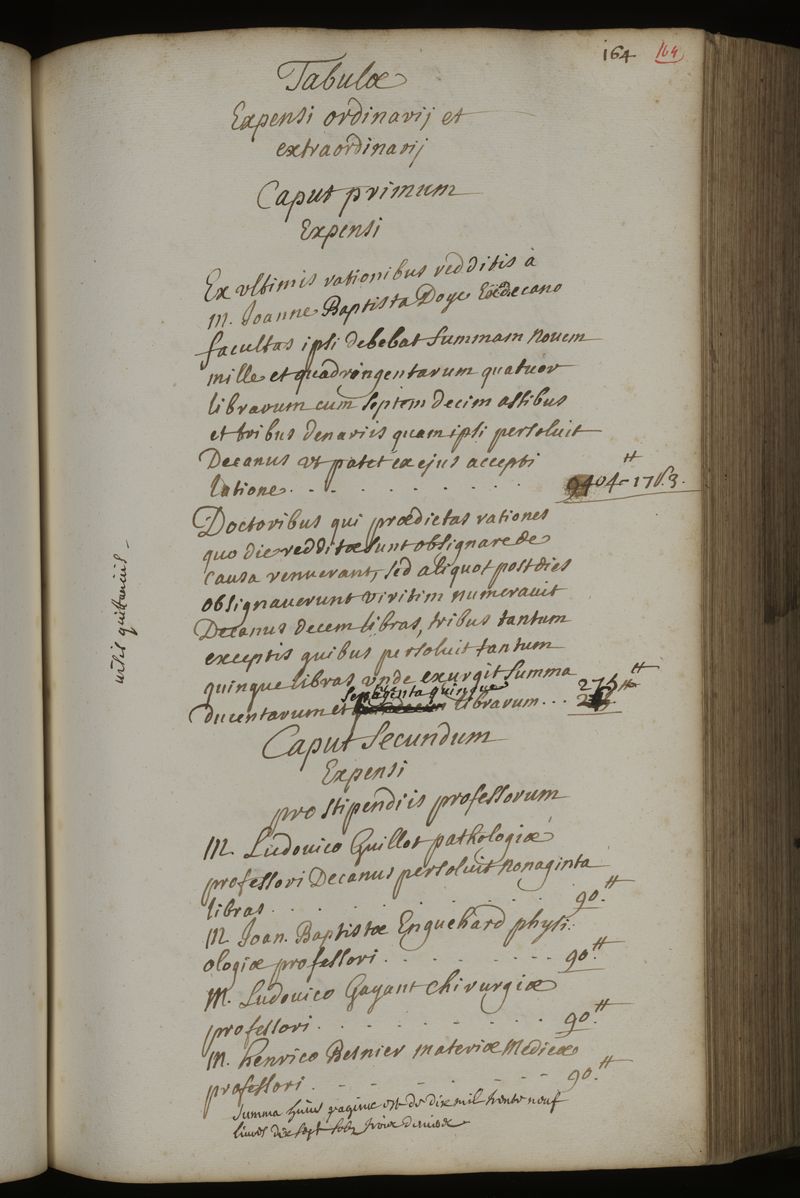 164 164
Tabulæ
Expensi ordinarij et
extraordinarij
Caput primum
Expensi
Ex vltimis rationibus redditis à
M. Joanne Baptista Doye Exdecano
facultas ipsi debebat summam novem
mille et quadringentarum quatuor
librarum cum septem decim assibus
et tribus denariis quam ipsi persoluit
Decanus vt patet ex ejus accepti
latione . . . . . . . . . . 9404-17s.3.
Doctoribus qui prædictas rationes
quo die redditæ sunt obsignare de
causa venuerant, sed aliquot post dies
obsignauerunt viritim numerauit
Decanus decem libras, tribus tantum
exceptis quibus persoluit tantum
quinque libras vnde exurgit summa
septuaginta quinque 275
ducentarum et librarum . . .
Caput secundum
Expensi
pro stipendiis professorum
M. Ludovico Guillot pathologiæ
professori Decanus persoluit nonaginta
libras . . . . . . . . . 90.
M. Joan. Baptistæ Enguehard physi-
ologiæ professori . . . . . . . 90.
M. Ludovico Gayant chirurgiæ
professori . . . . . . . . 90.
M. henrico Besnier materiæ Medicæ
professori . - - - - - - 90.
Summa huius paginæ est de dix mil trente neuf
liures dix sept solz trois deniers